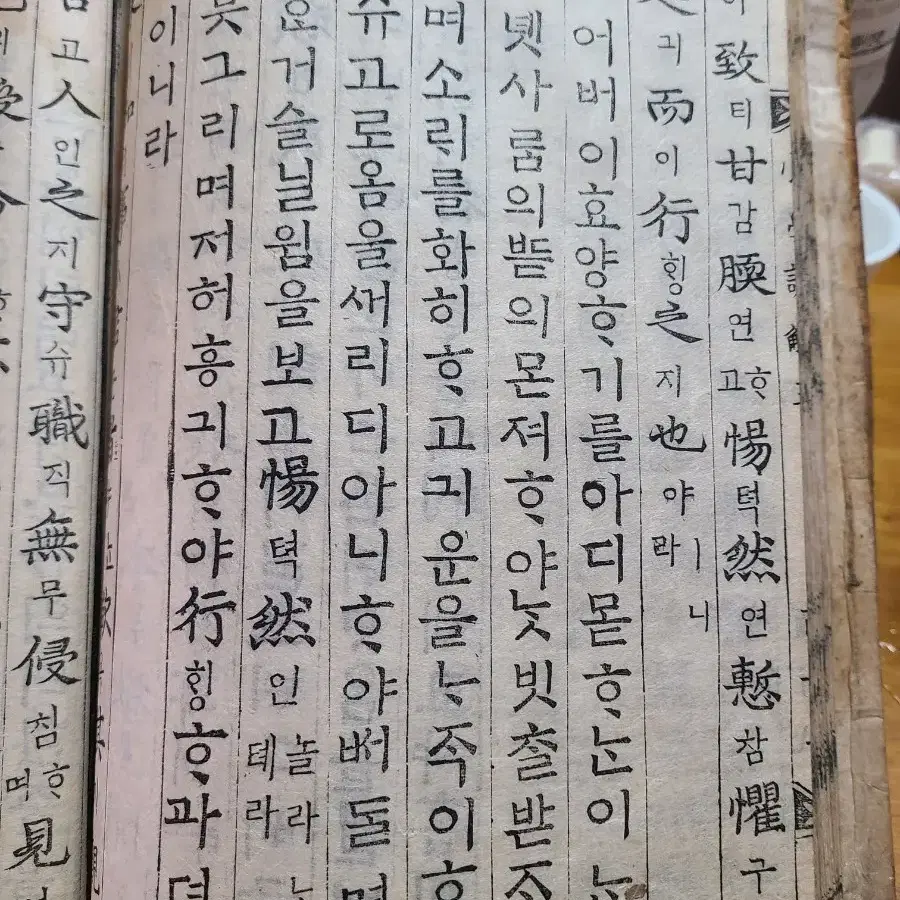 致티甘감腝연ᄒᆞ고惕텩然연慙참懼구
긔而이行ᄒᆡᆼ之지也야ㅣ니라
어버이효양ᄒᆞ기를아디몯ᄒᆞᄂᆞᆫ이ᄂᆞᆫ
녯사ᄅᆞᆷ의ᄠᅳᆮ의몬져ᄒᆞ야ᄂᆞᆺ빗츨받ᄌᆞ
며소ᄅᆡ를화히ᄒᆞ고긔운을ᄂᆞ즉이ᄒᆞ
슈고로옴을ᄭᅥ리디아니ᄒᆞ야ᄡᅥ돌며
요거슬닐윔을보고惕텩然인놀라ᄂᆞ테라
붓그리며저허흥긔ᄒᆞ야行ᄒᆡᆼᄒᆞ과뎌
이니라
고人인之지守슈職직無무侵침ᄒᆞ며見